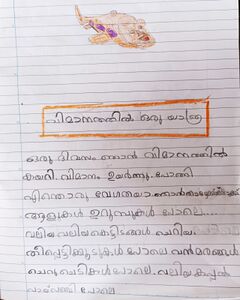 വിമാനത്തിൽ ഒരു യാത്ര
ഒരു ദിവസം ഞാൻ വിമാനത്തിൽ
കയറി. വിമാനം ഉയർന്നു പോങ്ങി
എന്തൊരു വേഗതയാ.
ആളുകൾ ഉറുമ്പുകൾ പോലെ...
വലിയ വലിയ കെട്ടിടങ്ങൾ ചെറിയ
തീപ്പെട്ടിക്കൂടുകൾ പോലെ വൻമരങ്ങൾ
ചെറു ചെടികൾ പോലെ. വലിയ കപ്പൽ
പോലെ